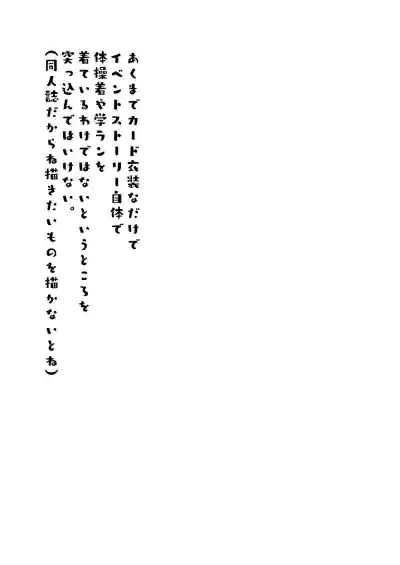 あくまでカード衣装なだけで
イベントストーリー自体で
体操着や学ランを
着ているわけではないというところを
突っ込んではいけない。
(同人誌だからね描きたいものを描かないとね)